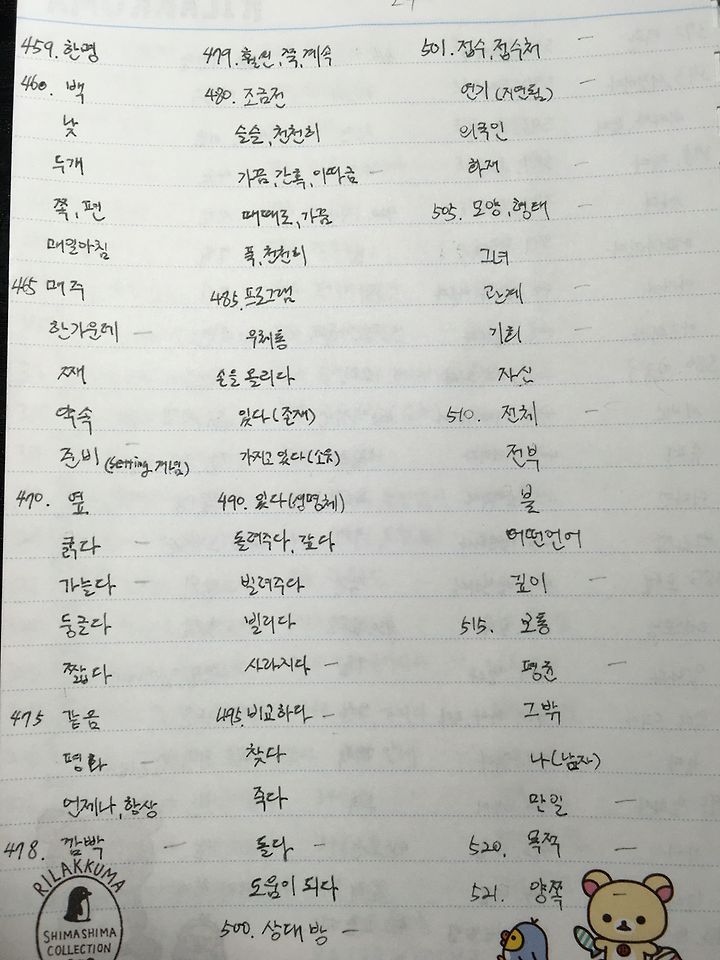 459. 한명
460. 백
낮
두개
쪽, 편
매일아침
465 매주
한가운데 -
째
약속
준비 (setting 개념)
470. 옆
굵다 -
가늘다 -
둥글다
짧다
475 같음
평화 -
언제나, 항상
478. 깜빡 -
479. 훨씬, 쭉, 계속
480. 조금전
슬슬, 천천히
가끔, 간혹, 이따금 -
때때로, 가끔
푹, 천천히
485. 프로그램
우체통
손을 올리다
있다 (존재)
가지고 있다 (소유)
490. 있다 (생명체)
돌려주다, 갚다
빌려주다
빌리다
사라지다 -
495. 비교하다 -
찾다
죽다
돌다 -
도움이 되다
500. 상대방 -
501. 접수, 접수처 -
연기 (지연됨) -
외국인
화재
505. 모양, 형태 -
그녀
관계 -
기회 -
자신
510. 전체 -
전부
불
어떤언어
깊이 -
515. 보통
평균 -
그밖
나 (남자)
만일 -
520. 목적
521. 양쪽 -
RILAKKUMA
SHIMASHIMA
COLLECTION